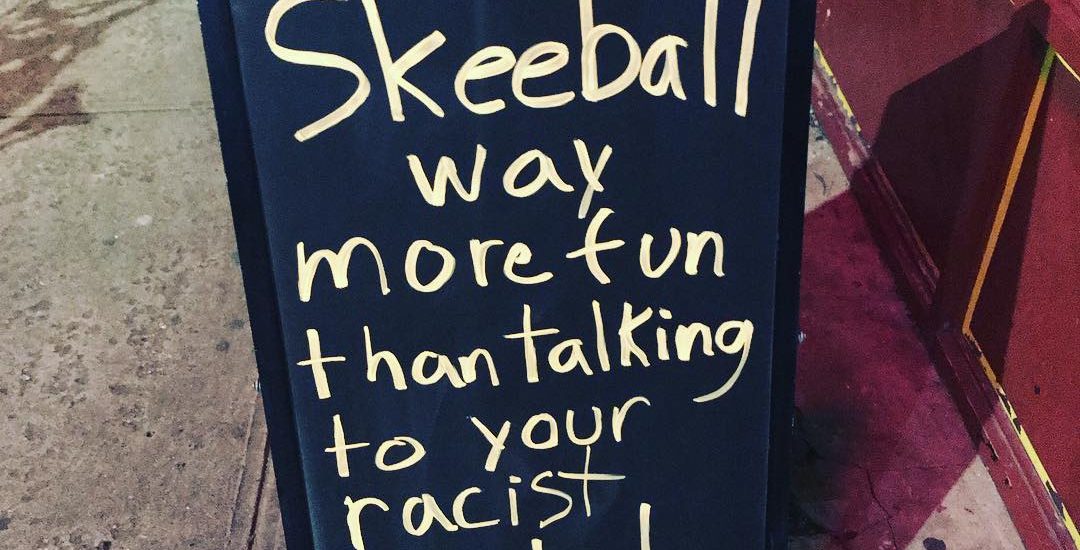 Skeeball
way
more fun
than talking
to your
racist